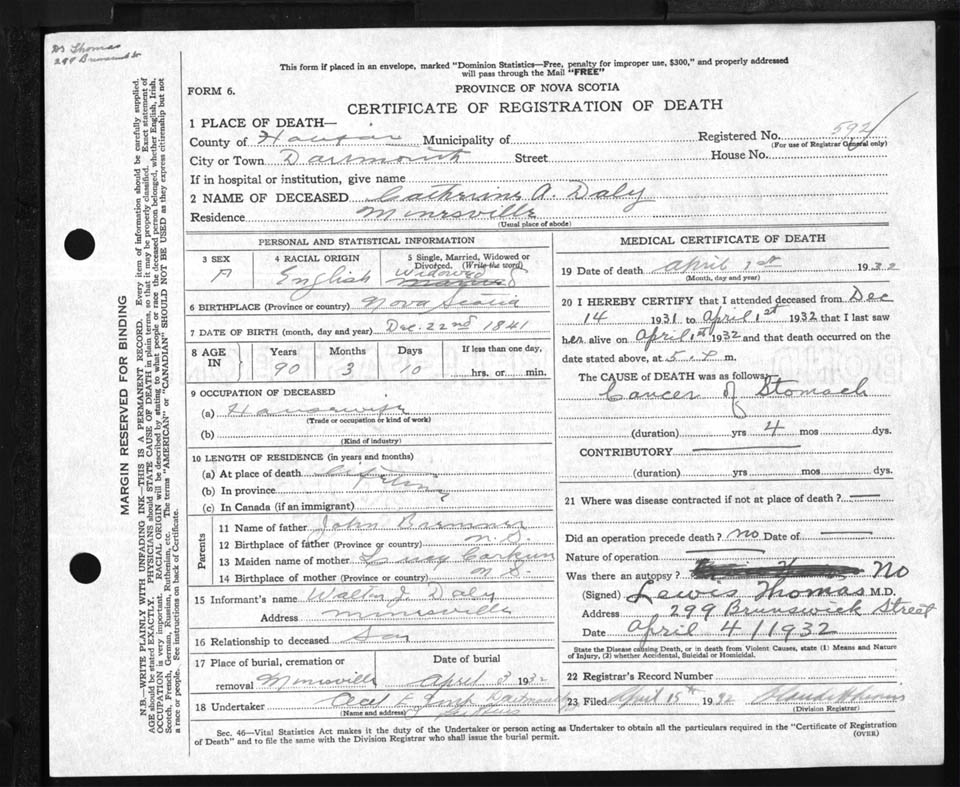 Dr Thomas
299 Brunswick St
This form if placed in an envelope, marked "Dominion Statistics—Free, penalty for improper use, $300," and properly addressed
will pass through the Mail "FREE"
FORM 6.
PROVINCE OF NOVA SCOTIA
CERTIFICATE OF REGISTRATION OF DEATH
1 PLACE OF DEATH—
County of Halifax Municipality of
Registered No. 592
(For use of Registrar General only)
City or Town Dartmouth Street House No.
If in hospital or institution, give name
2 NAME OF DECEASED Catherine A. Daly
Residence Minesville
(Usual place of abode)
PERSONAL AND STATISTICAL INFORMATION
3 SEX
F
4 RACIAL ORIGIN
English
5 Single, Married, Widowed or
Divorced. (Write the word)
Widowed
6 BIRTHPLACE (Province or country) Nova Scotia
7 DATE OF BIRTH (month, day and year) Dec. 22nd 1841
8 AGE IN
Years Months Days If less than one day,
90 3 10 hrs. or min.
9 OCCUPATION OF DECEASED
(a) Housewife
(Trade or occupation or kind of work)
(b)
(Kind of industry)
10 LENGTH OF RESIDENCE (in years and months)
(a) At place of death lifetime
(b) In province
(c) In Canada (if an immigrant)
Parents
11 Name of father John
12 Birthplace of father (Province or country) N.S.
13 Maiden name of mother Lucy
14 Birthplace of mother (Province or country) N S.
15 Informant's name Walter J. Daly
Address Minesville
16 Relationship to deceased Son
17 Place of burial, cremation or
removal Minesville
Date of burial
April 3 1932
18 Undertaker Dartmouth
(Name and address)
MEDICAL CERTIFICATE OF DEATH
19 Date of death April 1st 1932
(Month, day and year)
20 I HEREBY CERTIFY that I attended deceased from Dec
14 1931 to April 1st 1932 that I last saw
her alive on April 1st 1932 and that death occurred on the
date stated above, at 5. P. m.
The CAUSE of DEATH was as follows:
Cancer of Stomach
(duration) yrs 4 mos dys.
CONTRIBUTORY
(duration) yrs mos dys.
21 Where was disease contracted if not at place of death?
Did an operation precede death? no Date of
Nature of operation
Was there an autopsy? No
(Signed) Lewis Thomas M.D.
Address 299 Brunswick Street
Date April 4/1932
State the Disease causing Death, or in death from Violent Causes, state (1) Means and Nature
of Injury, (2) whether Accidental, Suicidal or Homicidal.
22 Registrar's Record Number
23 Filed April 15th 1932
(Division Registrar)
Sec. 46—Vital Statistics Act makes it the duty of the Undertaker or person acting as Undertaker to obtain all the particulars required in the "Certificate of Registration
of Death" and to file the same with the Division Registrar who shall issue the burial permit.
(OVER)
MARGIN RESERVED FOR BINDING
N.B.—WRITE PLAINLY WITH UNFADING INK—THIS IS A PERMANENT RECORD. Every item of information should be carefully supplied.
AGE should be stated EXACTLY. PHYSICIANS should STATE CAUSE OF DEATH in plain terms, so that it may be properly classified. Exact statement of
OCCUPATION is very important. RACIAL ORIGIN will be described by stating to what people or race the deceased person belonged, whether English, Irish,
Scotch, French, German, Russian, Ruthenian, etc. The terms "AMERICAN" or "CANADIAN" SHOULD NOT BE USED as they express citizenship but not
a race or people. See instructions on back of Certificate.